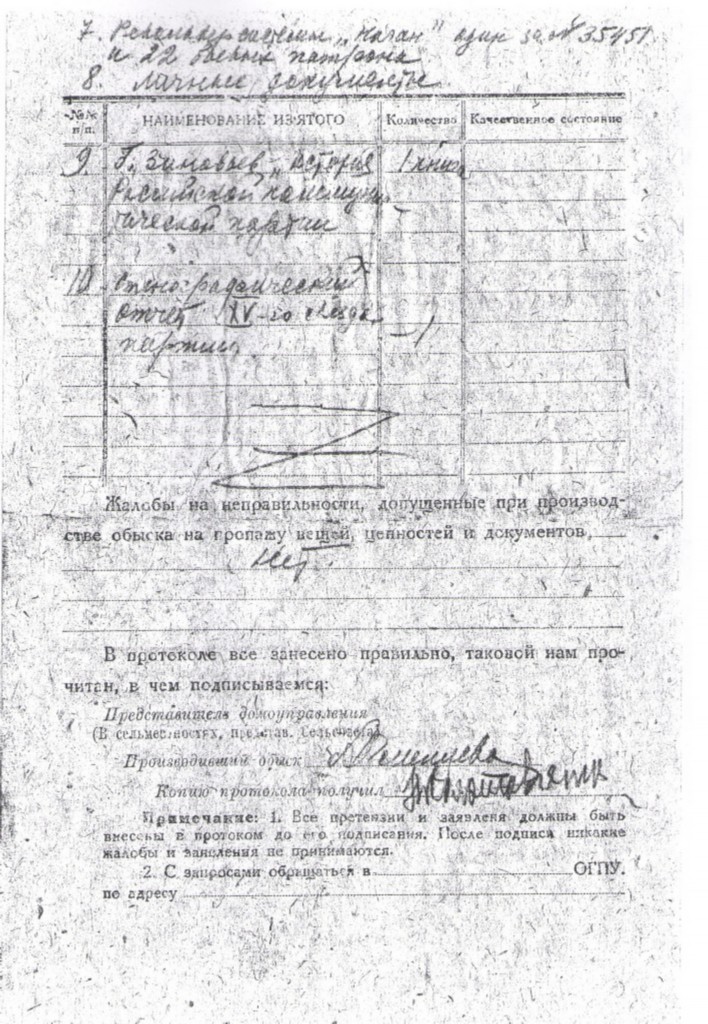 7. Револьвер системы „Наган" один за № 35451
и 22 боевых патрона
8. личные документы
№№ п/п. НАИМЕНОВАНИЕ ИЗ'ЯТОГО Количество Качественное состояние
9. Г. Зиновьев - „История 1 книга
Российской коммуни-
тической партии
10 Стенографический
отчет XV-го съезда - 1
партии
Жалобы на неправильности, допущенные при производ-
стве обыска на пропажу вещей, ценностей и документов,
Нет.
В протоколе все занесено правильно, таковой нам про-
читан, в чем подписываемся:
Представитель домоуправления
(В сельместностях, представ. Сельсовета)
Производивший обыск
Копию протокола получил
Примечание: 1. Все претензии и заявленя должны быть
внесены в протоком до его подписания. После подписи никакие
жалобы и заявления не принимаются.
2. С запросами обращаться в ОГПУ.
по адресу